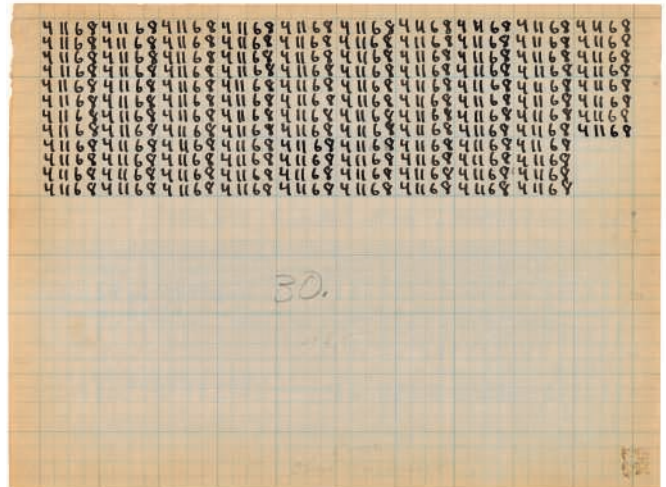 4 11 68 4 11 68 4 11 68 4 11 68 4 11 68 4 11 68 4 11 68 4 11 68 4 11 68 4 11 68
4 11 68 4 11 68 4 11 68 4 11 68 4 11 68 4 11 68 4 11 68 4 11 68 4 11 68 4 11 68
4 11 68 4 11 68 4 11 68 4 11 68 4 11 68 4 11 68 4 11 68 4 11 68 4 11 68 4 11 68
4 11 68 4 11 68 4 11 68 4 11 68 4 11 68 4 11 68 4 11 68 4 11 68 4 11 68 4 11 68
4 11 68 4 11 68 4 11 68 4 11 68 4 11 68 4 11 68 4 11 68 4 11 68 4 11 68 4 11 68
4 11 68 4 11 68 4 11 68 4 11 68 4 11 68 4 11 68 4 11 68 4 11 68 4 11 68 4 11 68
4 11 68 4 11 68 4 11 68 4 11 68 4 11 68 4 11 68 4 11 68 4 11 68 4 11 68 4 11 68
4 11 68 4 11 68 4 11 68 4 11 68 4 11 68 4 11 68 4 11 68 4 11 68 4 11 68 4 11 68
4 11 68 4 11 68 4 11 68 4 11 68 4 11 68 4 11 68 4 11 68 4 11 68 4 11 68
4 11 68 4 11 68 4 11 68 4 11 68 4 11 68 4 11 68 4 11 68 4 11 68 4 11 68
4 11 68 4 11 68 4 11 68 4 11 68 4 11 68 4 11 68 4 11 68 4 11 68 4 11 68
4 11 68 4 11 68 4 11 68 4 11 68 4 11 68 4 11 68 4 11 68 4 11 68 4 11 68
30.